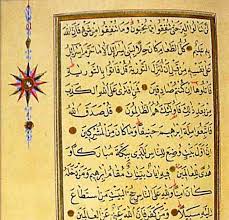 لن تنالوا البر حتى تنفقوا مما تحبون وما تنفقوا من شيء فإن الله
به عليم كل الطعام كان حلا لبني إسرائيل إلا ما حرم إسرائيل
على نفسه من قبل أن تنزل التورية قل فأتوا بالتورية
فاتلوها إن كنتم صادقين فمن افترى على الله الكذب
من بعد ذلك فأولئك هم الظالمون قل صدق الله
فاتبعوا ملة إبراهيم حنيفا وما كان من المشركين
إن أول بيت وضع للناس للذي ببكة مباركا و
هدى للعالمين فيه آيات بينات مقام إبراهيم ومن دخله
كان آمنا ولله على الناس حج البيت من استطاع
إليه سبيلا ومن كفر فإن الله غني عن العالمين